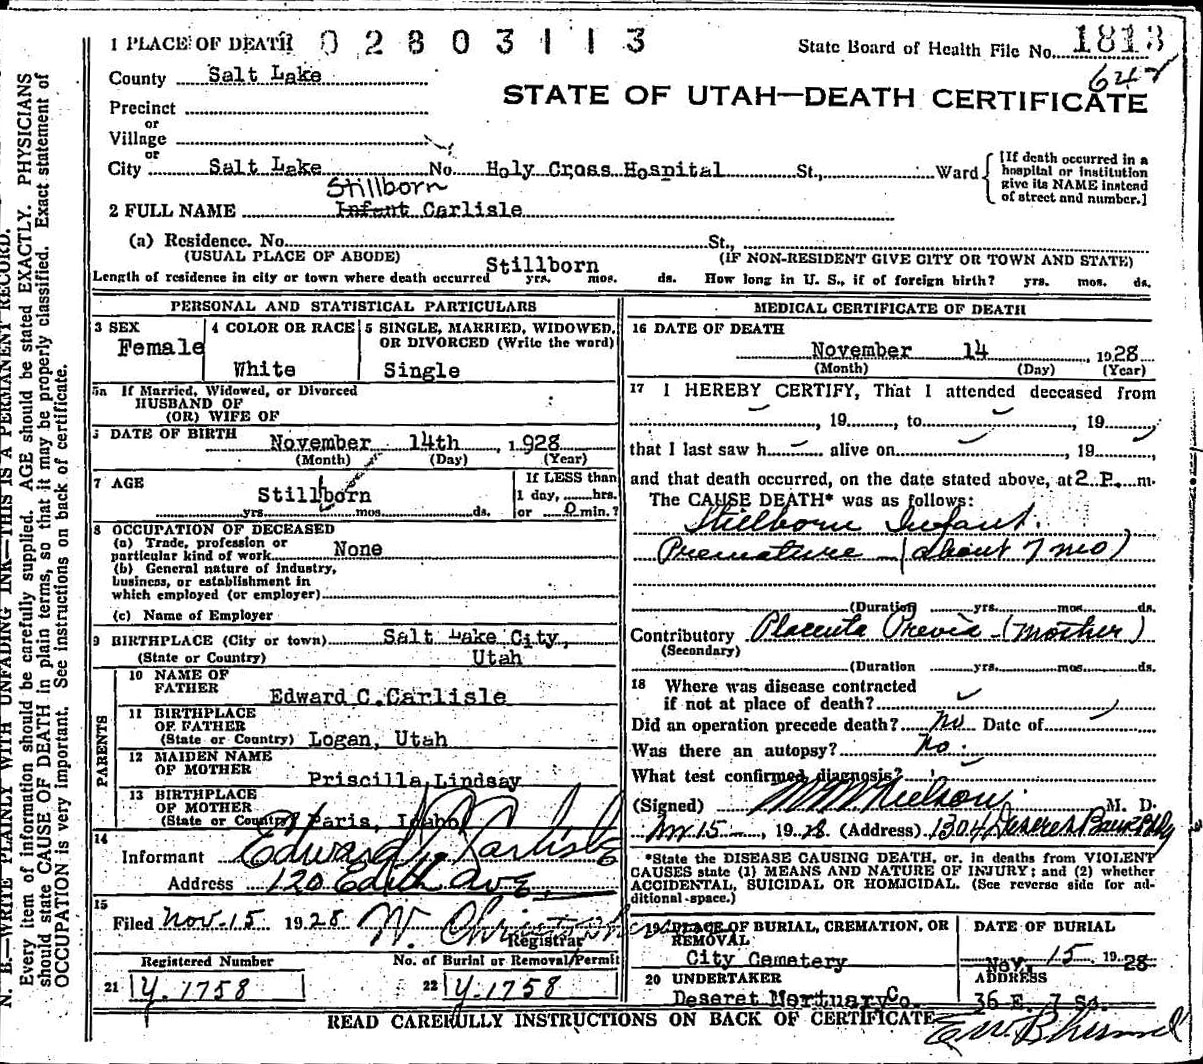 1 PLACE OF DEATH 02803113 State Board of Health File No. 1813
County Salt Lake 642
STATE OF UTAH—DEATH CERTIFICATE
Precinct
or
Village
or
City Salt Lake No. Holy Cross Hospital St., Ward [If death occurred in a hospital or institution give its NAME instead of street and number.]
Stillborn
2 FULL NAME Infant Carlisle
(a) Residence. No. St.,
(USUAL PLACE OF ABODE) (IF NON-RESIDENT GIVE CITY OR TOWN AND STATE)
Stillborn
Length of residence in city or town where death occurred yrs. mos. ds. How long in U. S., if of foreign birth? yrs. mos. ds.
PERSONAL AND STATISTICAL PARTICULARS
3 SEX Female
4 COLOR OR RACE White
5 SINGLE, MARRIED, WIDOWED, OR DIVORCED (Write the word) Single
5a If Married, Widowed, or Divorced
HUSBAND OF
(OR) WIFE OF
DATE OF BIRTH November 14th, 1928
(Month) (Day) (Year)
7 AGE Stillborn
yrs. mos. ds.
If LESS than
1 day, hrs.
or 0 min.?
8 OCCUPATION OF DECEASED
(a) Trade, profession or
particular kind of work None
(b) General nature of industry,
business, or establishment in
which employed (or employer)
(c) Name of Employer
9 BIRTHPLACE (City or town) Salt Lake City,
(State or Country) Utah
PARENTS
10 NAME OF
FATHER Edward C. Carlisle
11 BIRTHPLACE
OF FATHER
(State or Country) Logan, Utah
12 MAIDEN NAME
OF MOTHER Priscilla Lindsay
13 BIRTHPLACE
OF MOTHER
(State or Country) Paris, Idaho
14
Informant Edward Carlisle
Address 120 Edith Ave
15
Filed Nov. 15 1928 W. Registrar
Registered Number No. of Burial or Removal Permit
21 Y. 1758 22 Y. 1758
MEDICAL CERTIFICATE OF DEATH
16 DATE OF DEATH
November 14, 1928
(Month) (Day) (Year)
17 I HEREBY CERTIFY, That I attended deceased from
, 19, to , 19
that I last saw h alive on , 19,
and that death occurred, on the date stated above, at 2 P. m.
The CAUSE DEATH* was as follows:
Stillborn Infant.
Premature (about 7 mo)
(Duration yrs. mos. ds.
Contributory Placenta Previa (Mother)
(Secondary)
(Duration yrs. mos. ds.
18 Where was disease contracted
if not at place of death?
Did an operation precede death? No Date of
Was there an autopsy? No.
What test confirmed diagnosis?
(Signed) M M Nielson M. D.
Nov 15, 1928 (Address) 1304 Deseret Bank Bldg
*State the DISEASE CAUSING DEATH, or, in deaths from VIOLENT
CAUSES state (1) MEANS AND NATURE OF INJURY; and (2) whether
ACCIDENTAL, SUICIDAL OR HOMICIDAL. (See reverse side for ad-
ditional space.)
19 PLACE OF BURIAL, CREMATION, OR
REMOVAL
City Cemetery
DATE OF BURIAL
Nov. 15. 1928
20 UNDERTAKER
Deseret Mortuary Co.
ADDRESS
36 E. 7 So.
READ CAREFULLY INSTRUCTIONS ON BACK OF CERTIFICATE
N. B.—WRITE PLAINLY WITH UNFADING INK—THIS IS A PERMANENT RECORD.
Every item of information should be carefully supplied. AGE should be stated EXACTLY. PHYSICIANS
should state CAUSE OF DEATH in plain terms, so that it may be properly classified. Exact statement of
OCCUPATION is very important. See instructions on back of certificate.